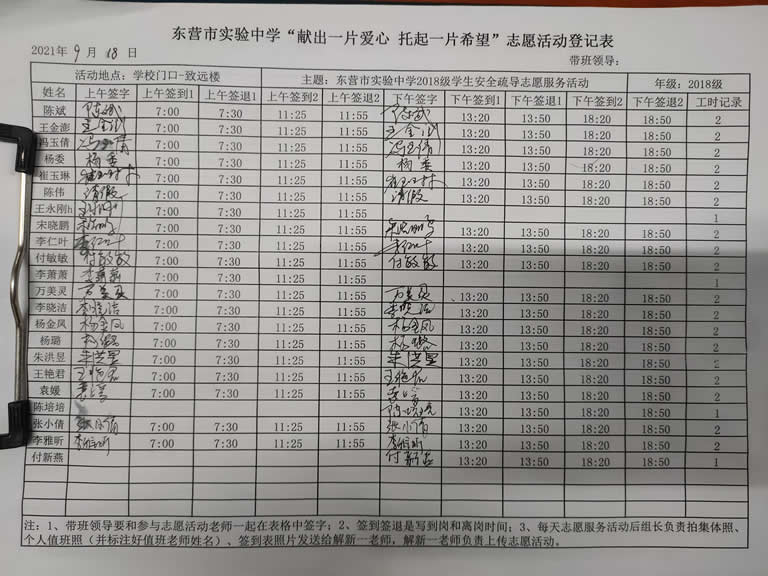 东营市实验中学“献出一片爱心 托起一片希望”志愿活动登记表
2021年 9 月 18 日 带班领导：
活动地点：学校门口-致远楼 主题：东营市实验中学2018级学生安全疏导志愿服务活动 年级：2018级
姓名 上午签字 上午签到1 上午签退1 上午签到2 上午签退2 下午签字 下午签到1 下午签退1 下午签到2 下午签退2 工时记录
陈斌 陈斌 7:00 7:30 11:25 11:55 陈斌 13:20 13:50 18:20 18:50 2
王金澎 王金澎 7:00 7:30 11:25 11:55 王金澎 13:20 13:50 18:20 18:50 2
冯玉倩 冯玉倩 7:00 7:30 11:25 11:55 冯玉倩 13:20 13:50 18:20 18:50 2
杨委 杨委 7:00 7:30 11:25 11:55 杨委 13:20 13:50 18:20 18:50 2
崔玉琳 崔玉琳 7:00 7:30 11:25 11:55 崔玉琳 13:20 13:50 18:20 18:50 2
陈伟 请假 7:00 7:30 11:25 11:55 请假 13:20 13:50 18:20 18:50 2
王永刚h 王永刚 7:00 7:30 11:25 11:55 1
宋晓鹏 7:00 7:30 11:25 11:55 宋晓鹏 13:20 13:50 18:20 18:50 2
李仁叶 李仁叶 7:00 7:30 11:25 11:55 李仁叶 13:20 13:50 18:20 18:50 2
付敏敏 付敏敏 7:00 7:30 11:25 11:55 付敏敏 13:20 13:50 18:20 18:50 2
李萧萧 李萧萧 7:00 7:30 11:25 11:55 1
万美灵 万美灵 7:00 7:30 11:25 11:55 万美灵 13:20 13:50 18:20 18:50 2
李晓洁 李晓洁 7:00 7:30 11:25 11:55 李晓洁 13:20 13:50 18:20 18:50 2
杨金凤 杨金凤 7:00 7:30 11:25 11:55 杨金凤 13:20 13:50 18:20 18:50 2
杨璐 杨璐 7:00 7:30 11:25 11:55 杨璐 13:20 13:50 18:20 18:50 2
朱洪昱 朱洪昱 7:00 7:30 11:25 11:55 朱洪昱 13:20 13:50 18:20 18:50 2
王艳君 王艳君 7:00 7:30 11:25 11:55 王艳君 13:20 13:50 18:20 18:50 2
袁媛 7:00 7:30 11:25 11:55 13:20 13:50 18:20 18:50 2
陈培培 13:20 13:50 18:20 18:50 1
张小倩 张小倩 7:00 7:30 11:25 11:55 张小倩 13:20 13:50 18:20 18:50 2
李雅昕 李雅昕 7:00 7:30 11:25 11:55 李雅昕 13:20 13:50 18:20 18:50 2
付新燕 付新燕 13:20 13:50 18:20 18:50 1
注：1、带班领导要和参与志愿活动老师一起在表格中签字；2、签到签退是写到岗和离岗时间；3、每天志愿服务活动后组长负责拍集体照、
个人值班照（并标注好值班老师姓名）、签到表照片发送给解新一老师，解新一老师负责上传志愿活动。